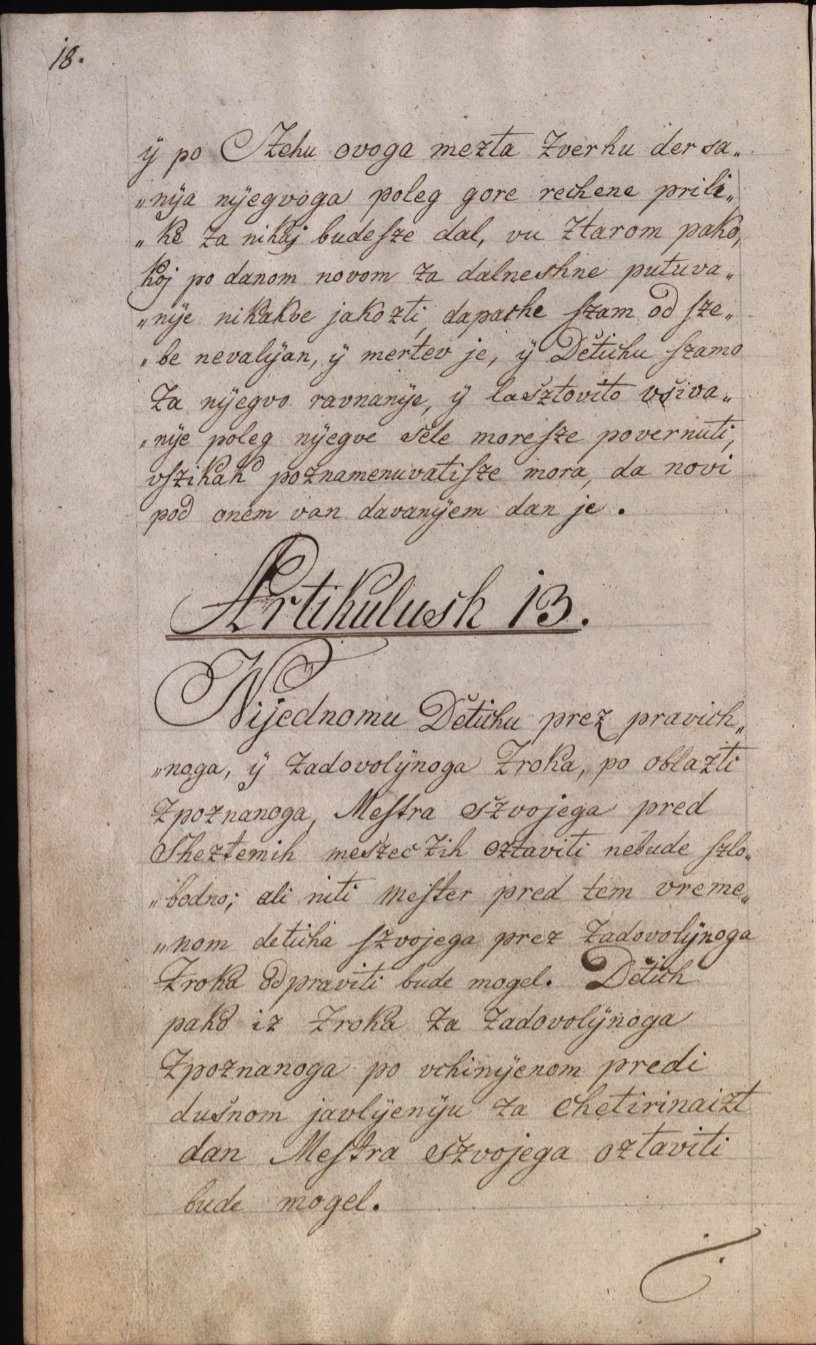 18.
ÿ po Czehu ovoga mezta zverhu dersa„
„nÿa nÿegvoga poleg gore rechene prili„
„ke za nikaj budesze dal, vu ztarom pako,
koj po danom novom za dalneshne putuva„
„nÿe nikakve jakozti, dapache szam od sze„
„be nevalÿan, ÿ mertev je, ÿ Detichu szamo
za nÿegvo ravnanÿe, ÿ lasztovito vsiva„
„nÿe poleg nÿegve sele moresze povernuti,
vszikak poznamenuvatisze mora, da novi
pod onem van davanÿem dan je.
Artikulush 13.
Nijednomu Detichu prez pravich„
„noga, ÿ zadovolÿnoga zroka, po oblazti
zpoznanoga, Mestra szvojega pred
sheztemih meszeczih oztaviti nebude szlo„
„bodno; ali niti Mester pred tem vreme„
„nom deticha szvojega prez zadovolÿnoga
zroka odpraviti bude mogel. Detich
pako iz zroka za zadovolÿnoga
zpoznanoga po vchinÿenom predi
dusnom javlÿenÿu za chetirinaizt
dan Mestra szvojega oztaviti
bude mogel.